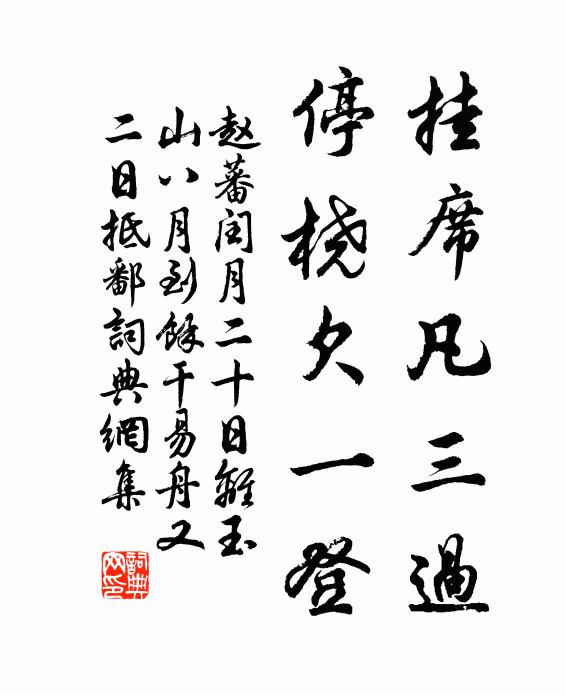 挂席凡三過
停橈欠一登
赵蕃閏月二十日離玉
山八月到餘干易舟又
二日抵鄱詞典網集
詞典
网印